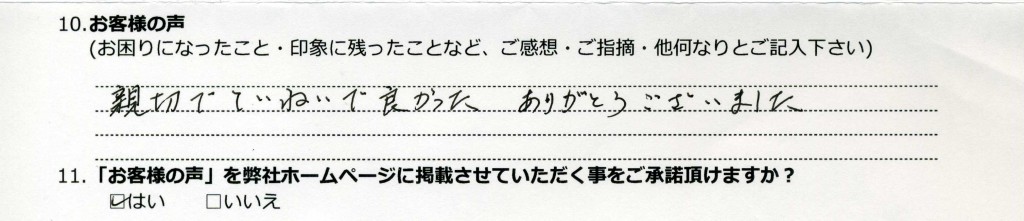 10.お客様の声
(お困りになったこと・印象に残ったことなど、ご感想・ご指摘・他何なりとご記入下さい)
親切でていねいで良かった ありがとうございました
11.「お客様の声」を弊社ホームページに掲載させていただく事をご承諾頂けますか？
☑はい □いいえ